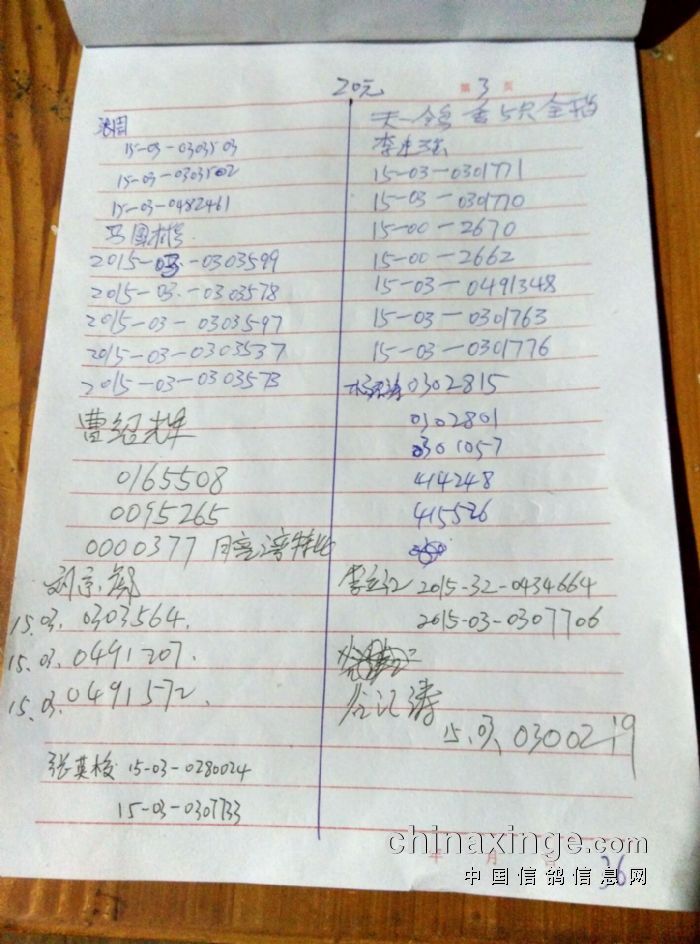 20元 第3页
15-03-0303503
15-03-0303502
15-03-0482461
马国彬
2015-03-0303599
2015-03-0303578
2015-03-0303597
2015-03-0303537
2015-03-0303573
曹绍辉
0165508
0095265
0000377
15.03.0303564.
15.03.0491207.
15.03.0491572.
张英梅 15-03-0280024
15-03-0307733
15-03-0301771
15-03-0301770
15-00-2670
15-00-2662
15-03-0491348
15-03-0301763
15-03-0301776
0302815
0302801
0301057
414248
415526
2015-32-0434664
2015-03-0307706
谷汇涛
15.03.
年 月 日
36
chinaxinge.com
中国信鸽信息网